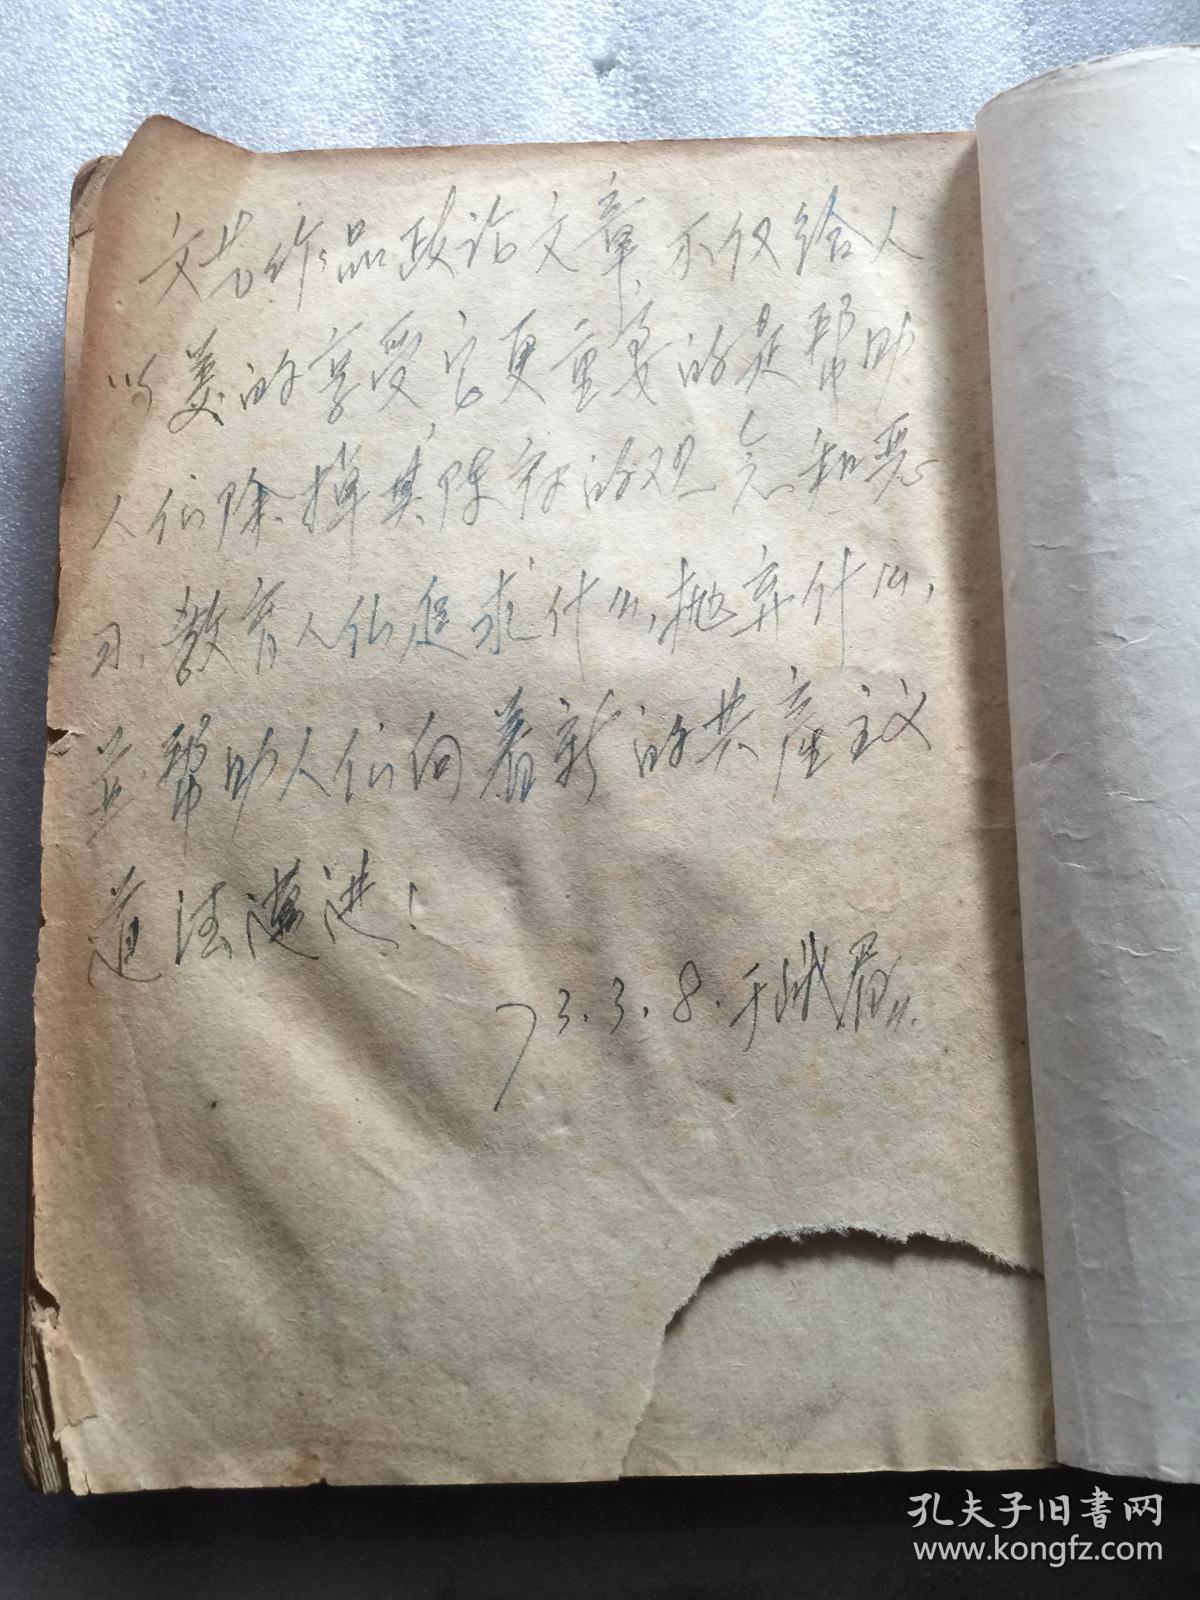 文艺作品政论文章,不仅给人
以美的享受它更重要的是帮助
人们除掉其陈旧的观念和恶
习,教育人们追求什么,抛弃什么,
并帮助人们向着新的共产主义
道法迈进!
73.3.8.于峨眉
孔夫子旧书网
www.kongfz.com